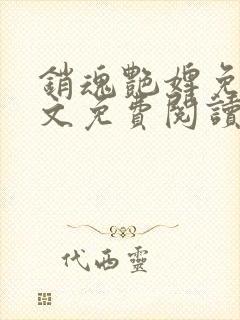 銷魂艷婢免
文免費閱讀
代西靈